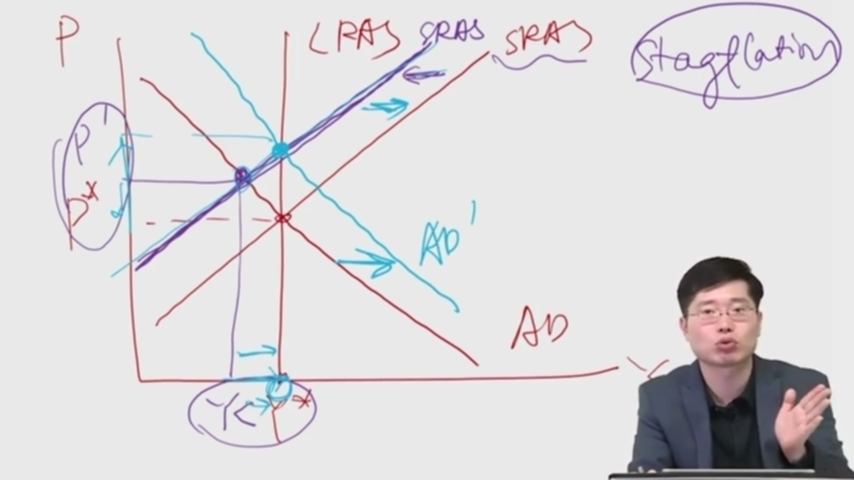 P LRAS SRAS SRAS
stagflation
P'
P*
AD'
AD
Y
Y< Y*